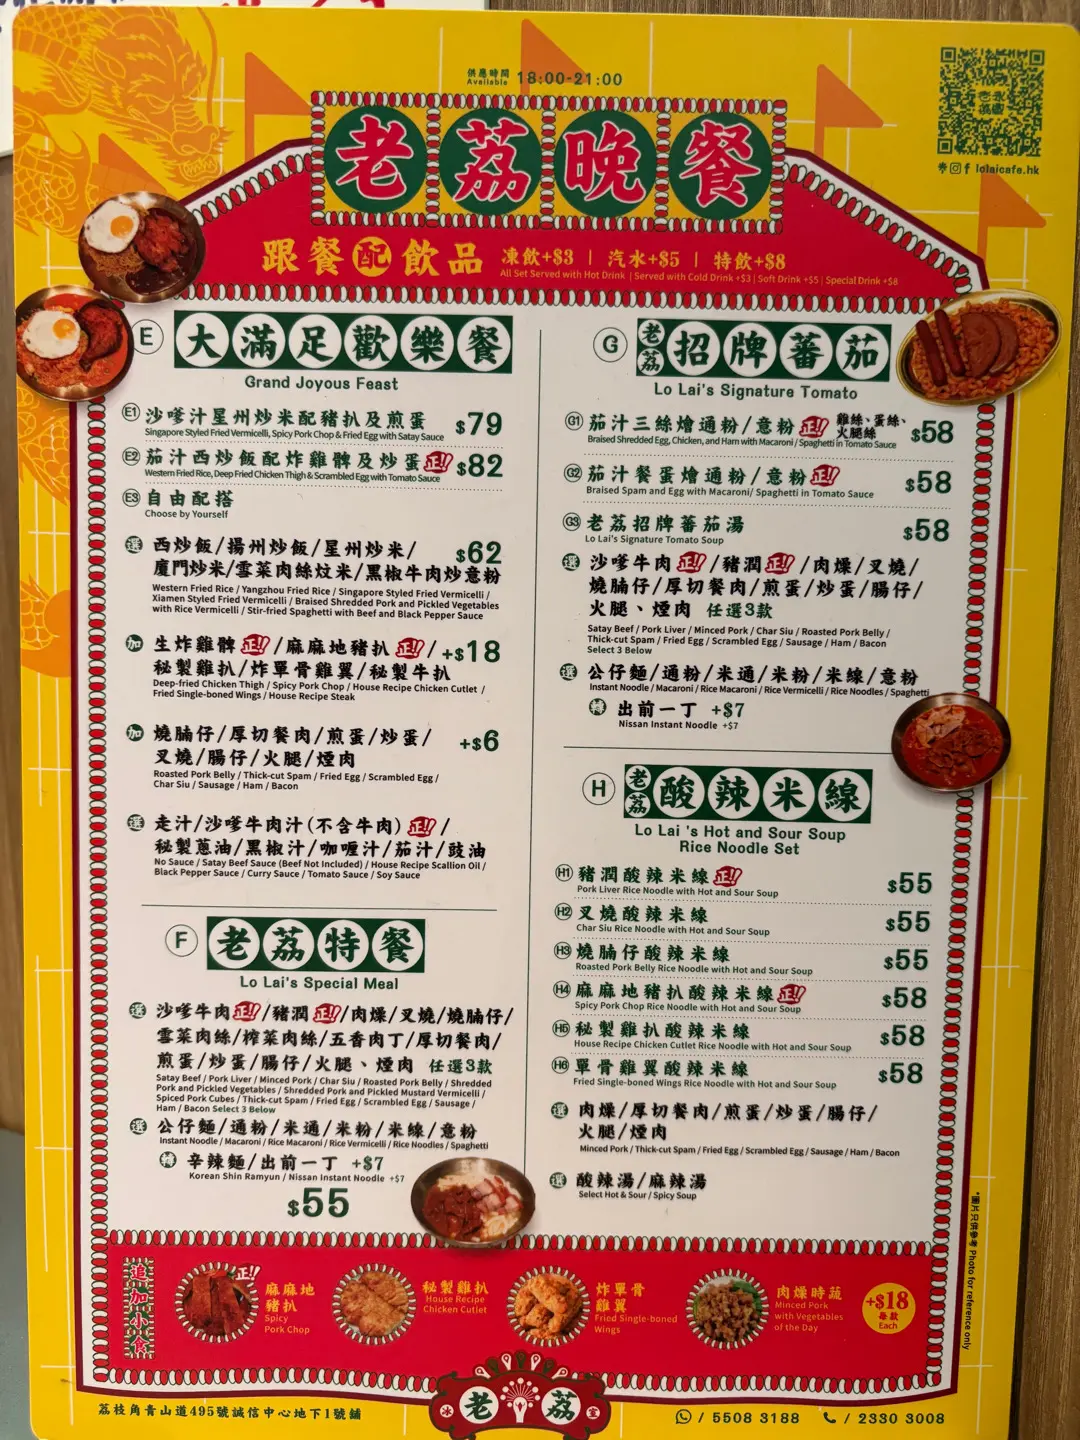 供應時間
Available 18:00-21:00
老荔晚餐
lolaicafe.hk
跟餐配飲品 凍飲+$3 | 汽水+$5 | 特飲+$8
All Set Served with Hot Drink | Served with Cold Drink +$3 | Soft Drink +$5 | Special Drink +$8
E 大滿足歡樂餐
Grand Joyous Feast
E1 沙嗲汁星州炒米配豬扒及煎蛋 $79
Singapore Styled Fried Vermicelli, Spicy Pork Chop & Fried Egg with Satay Sauce
E2 茄汁西炒飯配炸雞髀及炒蛋 正!! $82
Western Fried Rice, Deep Fried Chicken Thigh & Scrambled Egg with Tomato Sauce
E3 自由配搭
Choose by Yourself
選 西炒飯/揚州炒飯/星州炒米/ $62
廈門炒米/雪菜肉絲炆米/黑椒牛肉炒意粉
Western Fried Rice / Yangzhou Fried Rice / Singapore Styled Fried Vermicelli /
Xiamen Styled Fried Vermicelli / Braised Shredded Pork and Pickled Vegetables
with Rice Vermicelli / Stir-fried Spaghetti with Beef and Black Pepper Sauce
加 生炸雞髀 正!! /麻麻地豬扒 正!! / +$18
秘製雞扒/炸單骨雞翼/秘製牛扒
Deep-fried Chicken Thigh / Spicy Pork Chop / House Recipe Chicken Cutlet /
Fried Single-boned Wings / House Recipe Steak
加 燒腩仔/厚切餐肉/煎蛋/炒蛋/ +$6
叉燒/腸仔/火腿/煙肉
Roasted Pork Belly / Thick-cut Spam / Fried Egg / Scrambled Egg /
Char Siu / Sausage / Ham / Bacon
選 走汁/沙嗲牛肉汁(不含牛肉) 正!! /
秘製蔥油/黑椒汁/咖喱汁/茄汁/豉油
No Sauce / Satay Beef Sauce (Beef Not Included) / House Recipe Scallion Oil /
Black Pepper Sauce / Curry Sauce / Tomato Sauce / Soy Sauce
F 老荔特餐
Lo Lai's Special Meal
選 沙嗲牛肉 正!! /豬潤 正!! /肉燥/叉燒/燒腩仔/
雪菜肉絲/榨菜肉絲/五香肉丁/厚切餐肉/
煎蛋/炒蛋/腸仔/火腿、煙肉 任選3款
Satay Beef / Pork Liver / Minced Pork / Char Siu / Roasted Pork Belly / Shredded
Pork and Pickled Vegetables / Shredded Pork and Pickled Mustard Vermicelli /
Spiced Pork Cubes / Thick-cut Spam / Fried Egg / Scrambled Egg / Sausage /
Ham / Bacon Select 3 Below
選 公仔麵/通粉/米通/米粉/米線/意粉
Instant Noodle / Macaroni / Rice Macaroni / Rice Vermicelli / Rice Noodles / Spaghetti
轉 辛辣麵/出前一丁 +$7
Korean Shin Ramyun / Nissan Instant Noodle +$7
$55
G 老荔招牌蕃茄
Lo Lai's Signature Tomato
G1 茄汁三絲燴通粉/意粉 正!! 雞絲、蛋絲、火腿絲 $58
Braised Shredded Egg, Chicken, and Ham with Macaroni / Spaghetti in Tomato Sauce
G2 茄汁餐蛋燴通粉/意粉 正!! $58
Braised Spam and Egg with Macaroni/ Spaghetti in Tomato Sauce
G3 老荔招牌蕃茄湯 $58
Lo Lai's Signature Tomato Soup
選 沙嗲牛肉 正!! /豬潤 正!! /肉燥/叉燒/
燒腩仔/厚切餐肉/煎蛋/炒蛋/腸仔/
火腿、煙肉 任選3款
Satay Beef / Pork Liver / Minced Pork / Char Siu / Roasted Pork Belly /
Thick-cut Spam / Fried Egg / Scrambled Egg / Sausage / Ham / Bacon
Select 3 Below
選 公仔麵/通粉/米通/米粉/米線/意粉
Instant Noodle / Macaroni / Rice Macaroni / Rice Vermicelli / Rice Noodles / Spaghetti
轉 出前一丁 +$7
Nissan Instant Noodle +$7
H 老荔酸辣米線
Lo Lai 's Hot and Sour Soup
Rice Noodle Set
H1 豬潤酸辣米線 正!! $55
Pork Liver Rice Noodle with Hot and Sour Soup
H2 叉燒酸辣米線 $55
Char Siu Rice Noodle with Hot and Sour Soup
H3 燒腩仔酸辣米線 $55
Roasted Pork Belly Rice Noodle with Hot and Sour Soup
H4 麻麻地豬扒酸辣米線 正!! $58
Spicy Pork Chop Rice Noodle with Hot and Sour Soup
H5 秘製雞扒酸辣米線 $58
House Recipe Chicken Cutlet Rice Noodle with Hot and Sour Soup
H6 單骨雞翼酸辣米線 $58
Fried Single-boned Wings Rice Noodle with Hot and Sour Soup
選 肉燥/厚切餐肉/煎蛋/炒蛋/腸仔/
火腿/煙肉
Minced Pork / Thick-cut Spam / Fried Egg / Scrambled Egg / Sausage / Ham / Bacon
選 酸辣湯/麻辣湯
Select Hot & Sour / Spicy Soup
*圖片只供參考 Photo for reference only
追加小食
正!! 麻麻地
豬扒
Spicy
Pork Chop
秘製雞扒
House Recipe
Chicken Cutlet
炸單骨
雞翼
Fried Single-boned
Wings
肉燥時蔬
Minced Pork
with Vegetables
of the Day
+$18
每款
Each
荔枝角青山道495號誠信中心地下1號舖
冰 老荔 室
/ 5508 3188 / 2330 3008